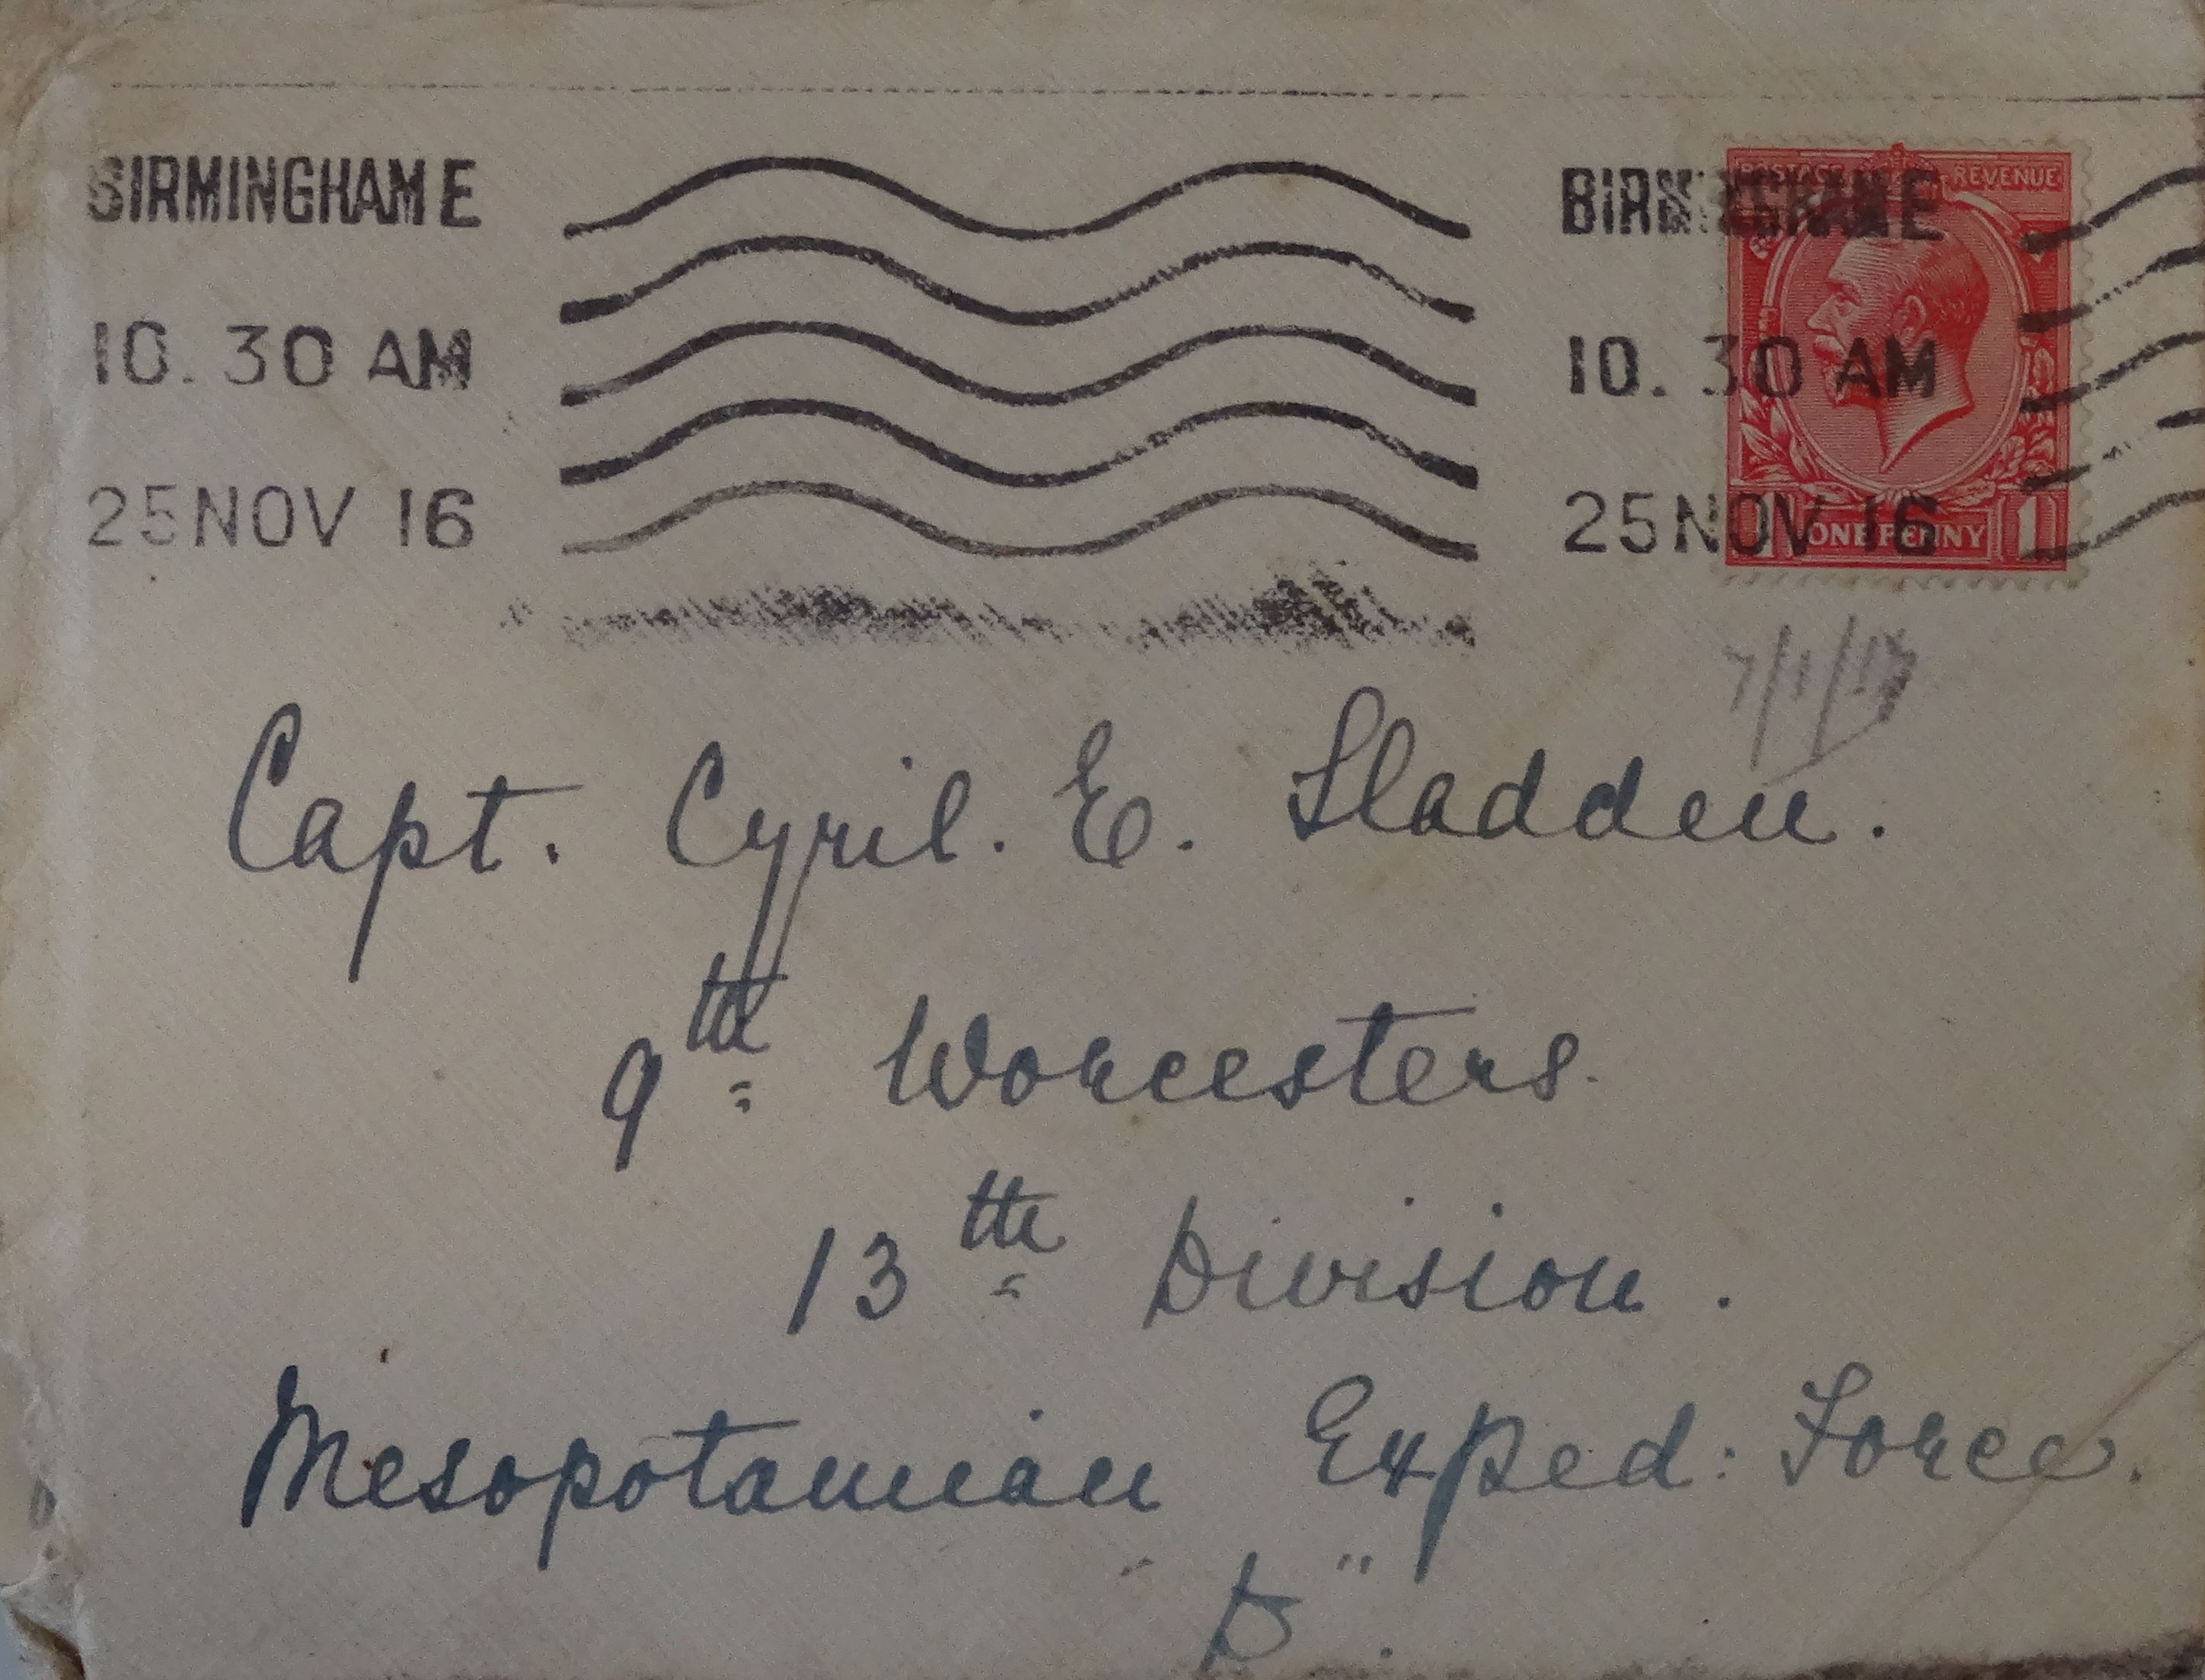 BIRMINGHAM E
10. 30 AM
25 NOV 16
BIRMINGHAM E
10. 30 AM
25 NOV 16
POSTAGE REVENUE
1 ONE PENNY 1
7/1/17
Capt. Cyril. E. Sladden.
9th Worcesters.
13th Division.
Mesopotamian Exped: Force.
"D".